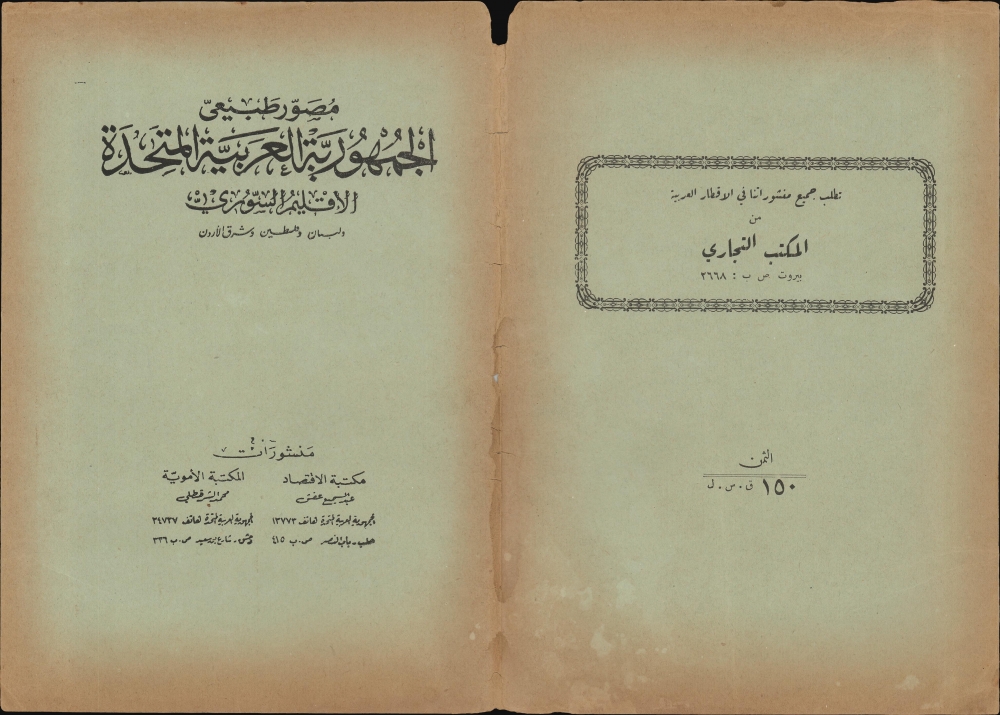 مصوّر طبيعيّ
الجمهوريّة العربيّة المتّحدة
الاقليم السّوري
ولبنان وفلسطين وشرق الأردن
منشورات
مكتبة الاقتصاد
عبد السميع عفش
الجمهورية العربية المتحدة هاتف ١٣٧٧٣
حلب - باب النصر ص.ب ٤١٥
المكتبة الأمويّة
محمد الشرقطلي
الجمهورية العربية المتحدة هاتف ٢٤٧٣٧
دمشق - شارع بورسعيد ص.ب ٣٣٦
تطلب جميع منشوراتنا في الاقطار العربية
من
المكتب التجاري
بيروت ص ب : ٢٦٦٨
الثمن
١٥٠ ق.س.ل